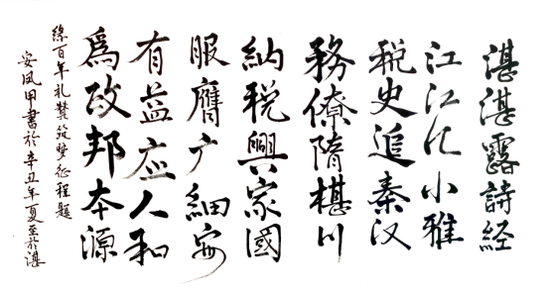 湛湛露詩経
江江汜小雅
税史追秦汉
務僚隋椹川
納税興家國
服膺广細安
有益应人和
爲政邦本源
百年礼賛筑梦征程題
安凤甲書於辛丑年夏至於湛